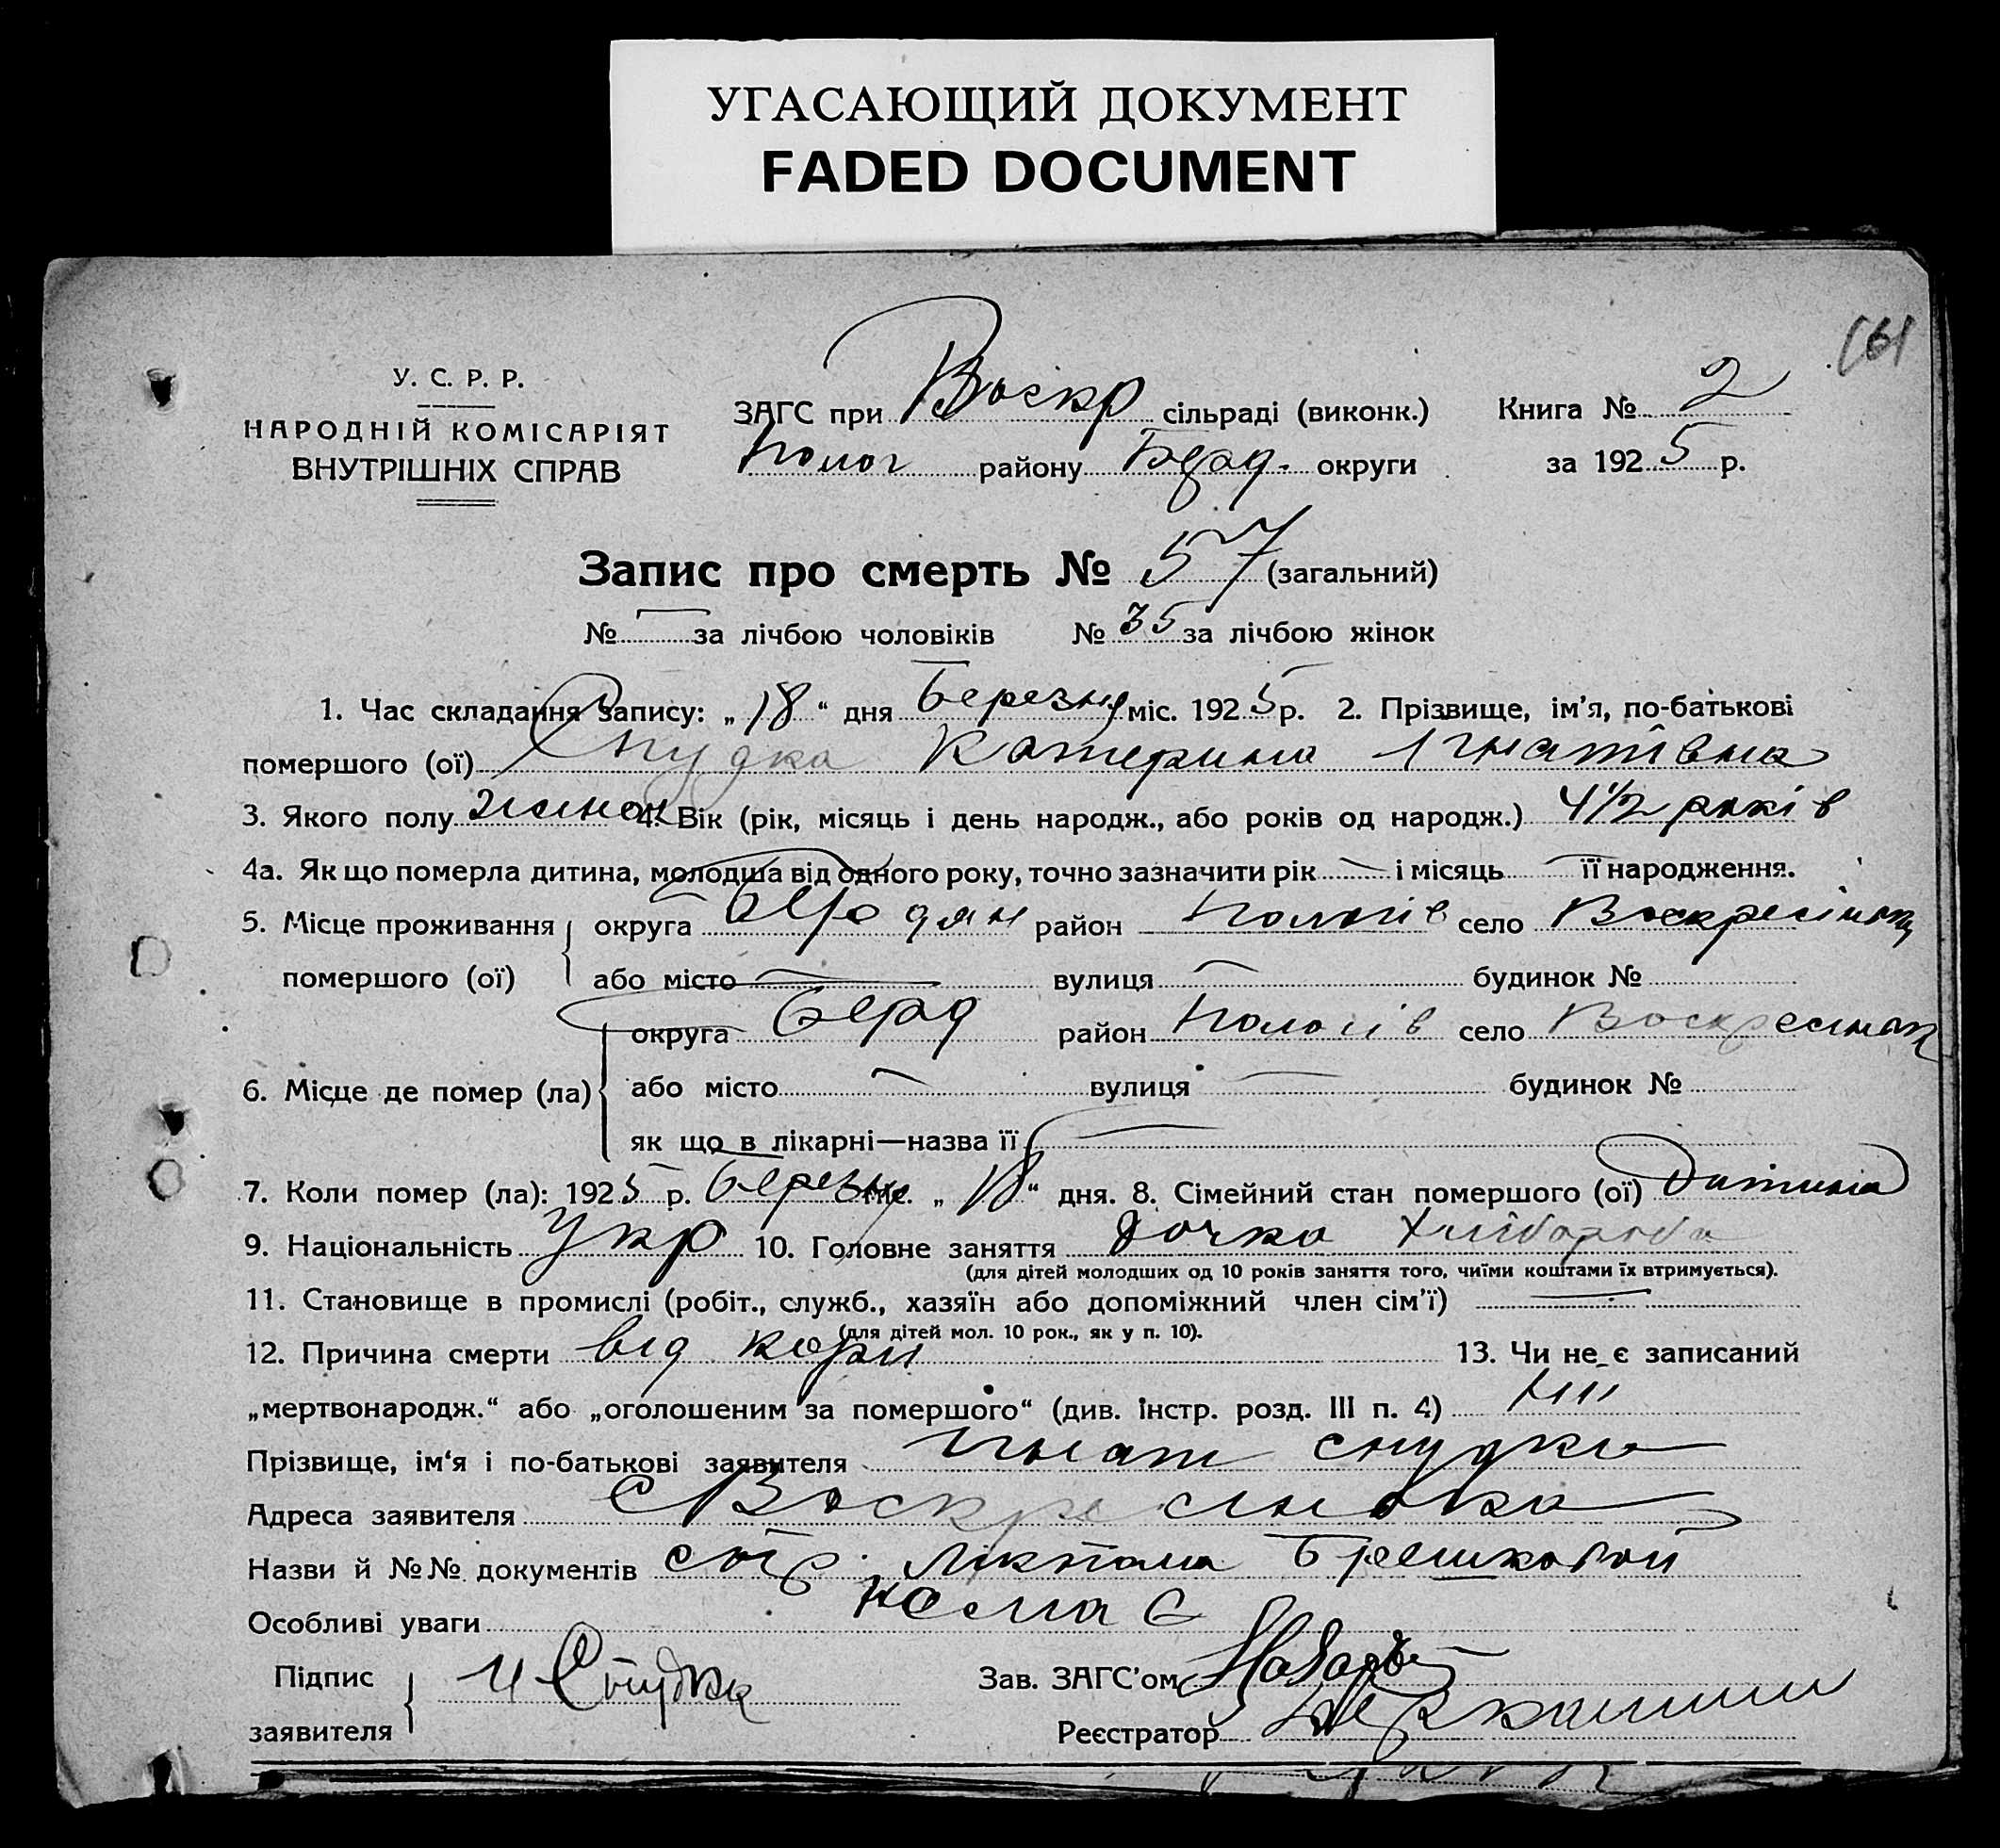 УГАСАЮЩИЙ ДОКУМЕНТ
FADED DOCUMENT
161
У. С. Р. Р.
НАРОДНІЙ КОМІСАРІЯТ
ВНУТРІШНІХ СПРАВ
ЗАГС при Воскр сільраді (виконк.)
Полог района Берд. округи
Книга № 2
за 1925 р.
Запис про смерть № 57 (загальний)
№ — за лічбою чоловіків № 35 за лічбою жінок
1. Час складання запису: „18“ дня Березня міс. 1925 р. 2. Прізвище, ім'я, по-батькові
помершого (ої) Снудка Катерина Ігнатівна
3. Якого полу жіноч 4. Вік (рік, місяць і день народж., або років од народж.) 4 1/2 років
4а. Як що померла дитина, молодша від одного року, точно зазначити рік — і місяць — її народження.
5. Місце проживання округа Бердян район Пологів село Воскресінка
помершого (ої) або місто — вулиця — будинок №
округа Берд район Пологів село Воскресінка
6. Місце де помер (ла) або місто — вулиця — будинок №
як що в лікарні—назва її —
7. Коли помер (ла): 1925 р. Березня міс. „18“ дня. 8. Сімейний стан помершого (ої) Дитина
9. Національність Укр 10. Головне заняття дочка хлібороба
(для дітей молодших од 10 років заняття того, чиїми коштами їх втримується).
11. Становище в промислі (робіт., служб., хазяїн або допоміжний член сім'ї) —
(для дітей мол. 10 рок., як у п. 10).
12. Причина смерти від кори 13. Чи не є записаний
„мертвонародж.“ або „оголошеним за помершого“ (див. інстр. розд. III п. 4) Ні
Прізвище, ім'я і по-батькові заявителя Ігнат Снудка
Адреса заявителя с Воскресінока
Назви й №№ документів Лікпома Брешковой
Особливі уваги нема є
Підпис заявителя И Снудка
Зав. ЗАГС'ом
Реєстратор